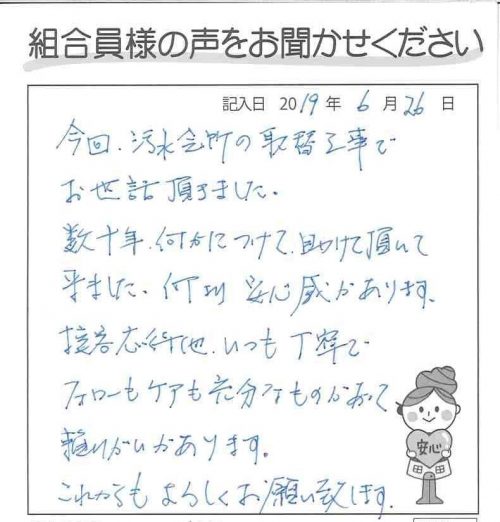 組合員様の声をお聞かせください
記入日 2019年 6月26日
今回、汚水会所の取替工事で
お世話頂きました。
数十年、何かにつけて、助けて頂いて
来ました、何より 安心感があります。
接客応待他、いつも 丁寧で
フォローもケアも充分なものがあって
頼りがいがあります。
これからも よろしくお願い致します。
安心